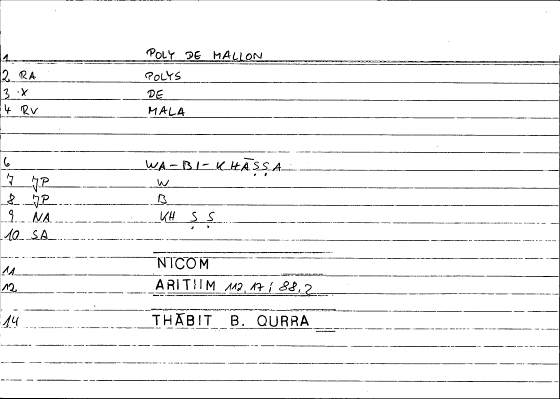 1 POLY DE MALLON
2 RA POLYS
3 X DE
4 RV MALA
6 WA-BI-KHĀṢṢA
7 JP W
8 JP B
9 NA KH Ṣ Ṣ
10 SA
11 NICOM
12 ARITIIM 112,17; 88,2
14 THĀBIT B. QURRA